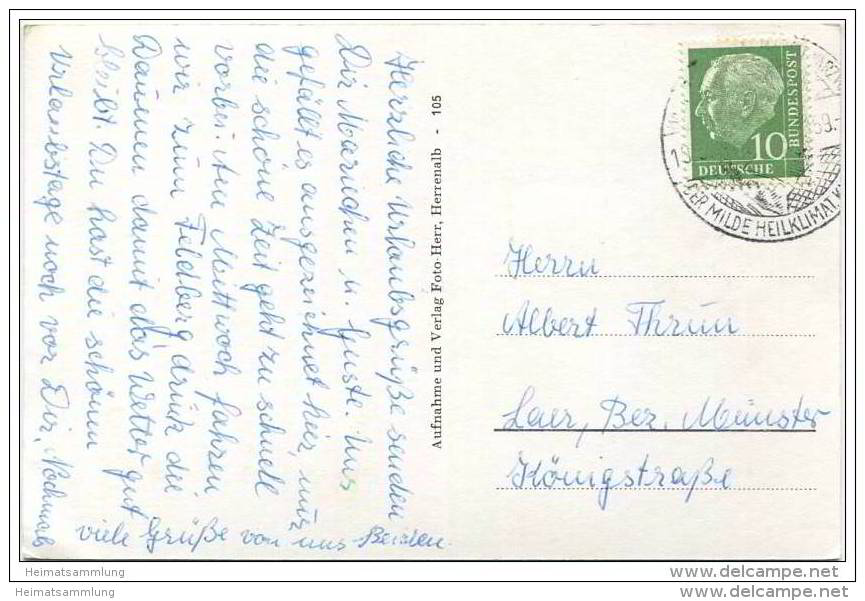 Herzliche Urlaubsgrüße senden
Dir Mariechen u. Guste. Uns
gefällt es ausgezeichnet hier, nur
die schöne Zeit geht zu schnell
vorbei. Am Mittwoch fahren
wir zum Feldberg drück die
Daumen damit das Wetter gut
bleibt. Du hast die schönen
Urlaubstage noch vor Dir, Nochmals
viele Grüße von uns Beiden.
Aufnahme und Verlag Foto-Herr, Herrenalb - 105
10
DEUTSCHE
BUNDESPOST
MILDE HEILKLIMAT.
Herrn
Albert Thrun
Laer, Bez. Münster
Königstraße
Heimatsammlung
Heimatsammlung
www.delcampe.net